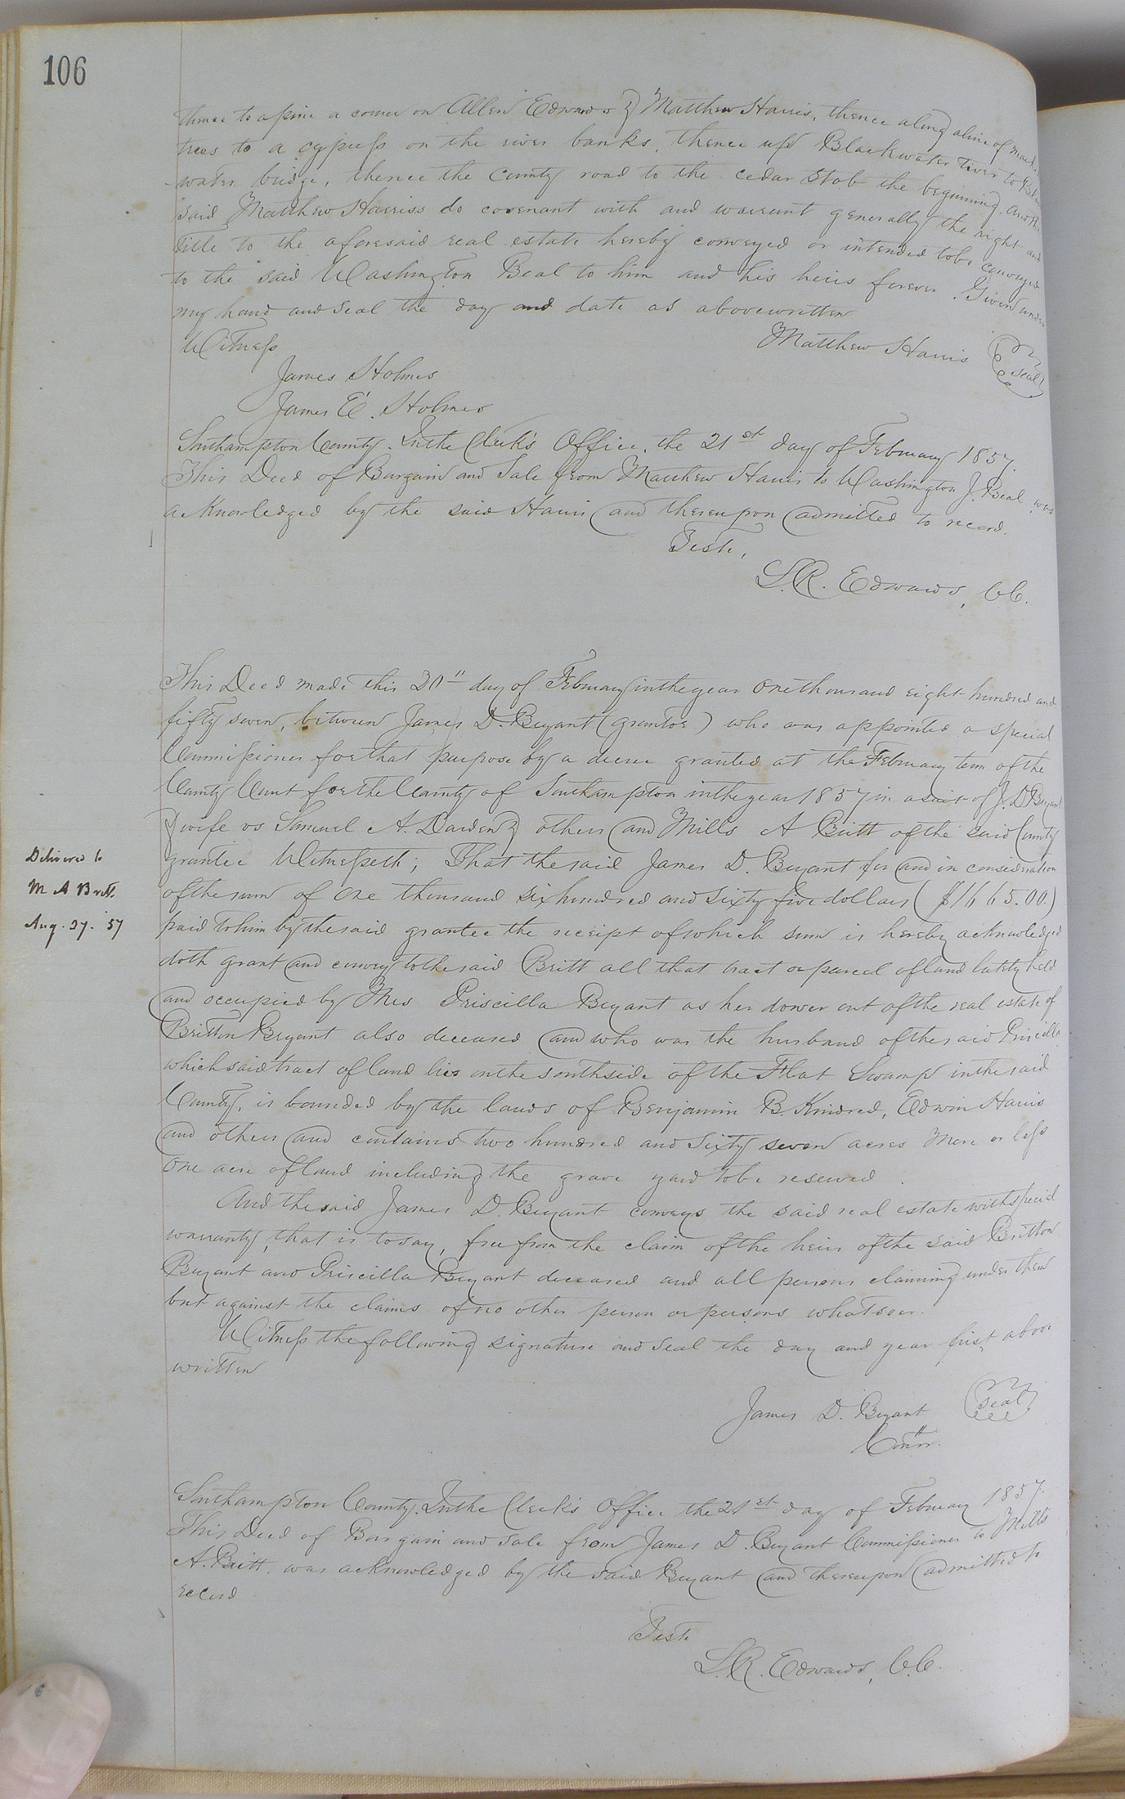 106
thence to a pine a corner on Allen Edwards & Matthew Harris, thence along a line of
trees to a cypress on the river banks, thence up Blackwater river to
water bridge, thence the County road to the cedar Stob the beginning.
said Matthew Harriss do covenant with and warrant generally the right and
title to the aforesaid real estate hereby conveyed or intended to be conveyed
to the said Washington Beal to him and his heirs forever. Given under
my hand and seal the day and date as above written
Witness
Matthew Harris
seal
James Holmes
James E. Holmes
Southampton County. In the Clerk's Office, the 21st day of February 1857.
This Deed of Bargain and Sale from Matthew Harris to Washington J. Beal was
acknowledged by the said Harris and thereupon admitted to record.
Teste,
L. R. Edwards, C.C.
This Deed made this 20" day of February in the year one thousand eight hundred and
fifty seven, between James D. Bryant (grantor) who was appointed a special
Commissioner for that purpose by a decree granted at the February term of the
County Court for the County of Southampton in the year 1857 in a suit of J. D. Bryant
& wife vs Samuel A. Darden & others and Mills A Britt of the said County
grantee Witnesseth; That the said James D. Bryant for and in consideration
of the sum of one thousand six hundred and sixty five dollars ($1665.00.)
paid to him by the said grantee the receipt of which sum is hereby acknowledged
doth grant and convey to the said Britt all that tract or parcel of land lately held
and occupied by Mrs Priscilla Bryant as her dower out of the real estate of
Britton Bryant also deceased and who was the husband of the said Priscilla
which said tract of land lies on the south side of the Flat Swamp in the said
County, is bounded by the lands of Benjamin B Kindred, Edwin Harris
and others and contains two hundred and sixty seven acres more or less
One acre of land including the grave yard to be reserved.
And the said James D. Bryant conveys the said real estate with special
warranty, that is to say, free from the claim of the heirs of the said Britton
Bryant and Priscilla Bryant deceased and all persons claiming under them
but against the claims of no other person or persons whatsoever.
Witness the following signature and seal the day and year first above
written
James D. Bryant
seal
Comr.
Delivered to
M A Britt.
Aug. 27. '57
Southampton County. In the Clerk's Office the 21st day of February 1857.
This Deed of Bargain and sale from James D. Bryant Commissioner to Mills
A. Britt, was acknowledged by the said Bryant and thereupon admitted to
record
Teste
L. R. Edwards, C.C.